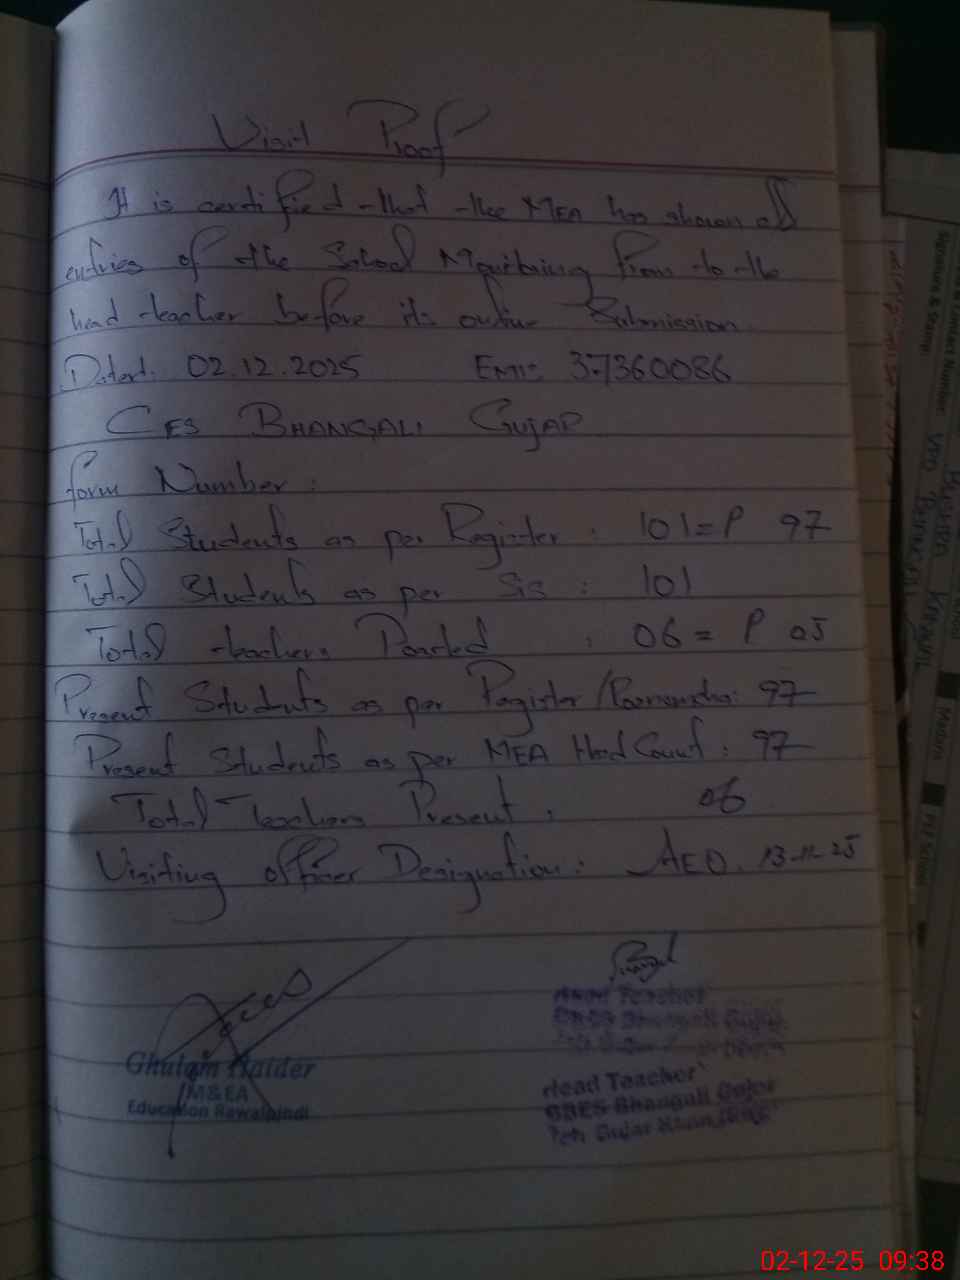 Visit Proof
It is certified that the MEA has shown all
entries of the School Monitoring from to the
head teacher before its online Submission.
Dated: 02.12.2025 EMI= 37360086
BHANGALI Gujar
form Number:
Total Students as per Register: 101=P 97
Total Students as per Sis: 101
Total teachers Posted: 06= P 05
Present Students as per Register: 97
Present Students as per MEA Head Count: 97
Total Teachers Present: 06
Visiting officer Designation: AEO. 13-11-25
Ghulam Haider
M&EA
Education Rawalpindi
Head Teacher
Bhangali Gujar
Head Teacher
Bhangali Gujar
Teh Gujar Khan
Signature & Stamp:
02-12-25 09:38